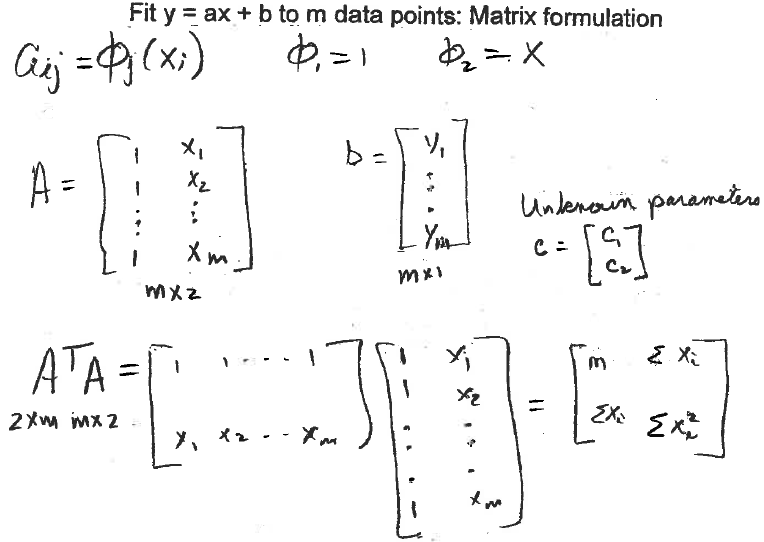 Fit y = ax + b to m data points: Matrix formulation
aij = ϕj(xi)   ϕ1 = 1   ϕ2 = x
A = [ 1 x1 1 x2 ⋮ ⋮ 1 xm ]
m x 2
b = [ y1 ⋮ ym ]
m x 1
Unknown parameters
c = [ c1 c2 ]
A^T A = [ 1 1 ... 1 x1 x2 ... xm ] [ 1 x1 1 x2 ⋮ ⋮ 1 xm ] = [ m Σxi Σxi Σxi^2 ]
2xm mx2